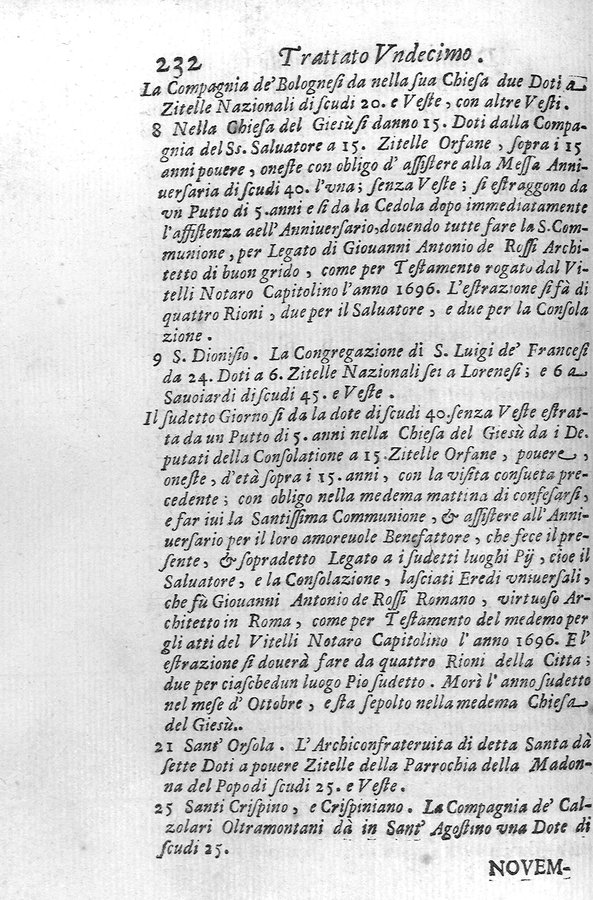 232 Trattato Vndecimo.
La Compagnia de' Bolognesi da nella sua Chiesa due Doti a
Zitelle Nazionali di scudi 20. e Veste, con altre Vesti.
8 Nella Chiesa del Giesù si danno 15. Doti dalla Compa-
gnia del Ss. Saluatore a 15. Zitelle Orfane, sopra i 15
anni pouere, oneste con obligo d' assistere alla Messa Anni-
uersaria di scudi 40. l'vna; senza Veste; si estraggono da
vn Putto di 5. anni e si da la Cedola dopo immediatamente
l'assistenza aell'Anniuersario, douendo tutte fare la S. Com-
munione, per Legato di Giouanni Antonio de Rossi Archi-
tetto di buon grido, come per Testamento rogato dal Vi-
telli Notaro Capitolino l'anno 1696. L'estrazione si fà di
quattro Rioni, due per il Saluatore, e due per la Consola
zione.
9 S. Dionisio. La Congregazione di S. Luigi de' Francesi
da 24. Doti a 6. Zitelle Nazionali sei a Lorenesi; e 6 a
Sauoiardi di scudi 45. e Veste.
Il sudetto Giorno si da la dote di scudi 40. senza Veste estrat-
ta da un Putto di 5. anni nella Chiesa del Giesù da i De.
putati della Consolatione a 15. Zitelle Orfane, pouere,
oneste, d'età sopra i 15. anni, con la visita consueta pre-
cedente; con obligo nella medema mattina di confesarsi,
e far iui la Santissima Communione, & assistere all'Anni-
uersario per il loro amoreuole Benefattore, che fece il pre-
sente, & sopradetto Legato a i sudetti luoghi Pij, cioe il
Saluatore, e la Consolazione, lasciati Eredi vniuersali,
che fù Giouanni Antonio de Rossi Romano, virtuoso Ar-
chitetto in Roma, come per Testamento del medemo per
gli atti del Vitelli Notaro Capitolino l'anno 1696. E l'
estrazione si douerà fare da quattro Rioni della Citta;
due per ciaschedun luogo Pio sudetto. Morì l'anno sudetto
nel mese d' Ottobre, e sta sepolto nella medema Chiesa
del Giesù..
21 Sant' Orsola. L'Archiconfrateruita di detta Santa dà
sette Doti a pouere Zitelle della Parrochia della Madon-
na del Popo di scudi 25. e Veste.
25 Santi Crispino, e Crispiniano. La Compagnia de' Cal-
zolari Oltramontani dà in Sant' Agostino vna Dote di
scudi 25.
NOVEM-